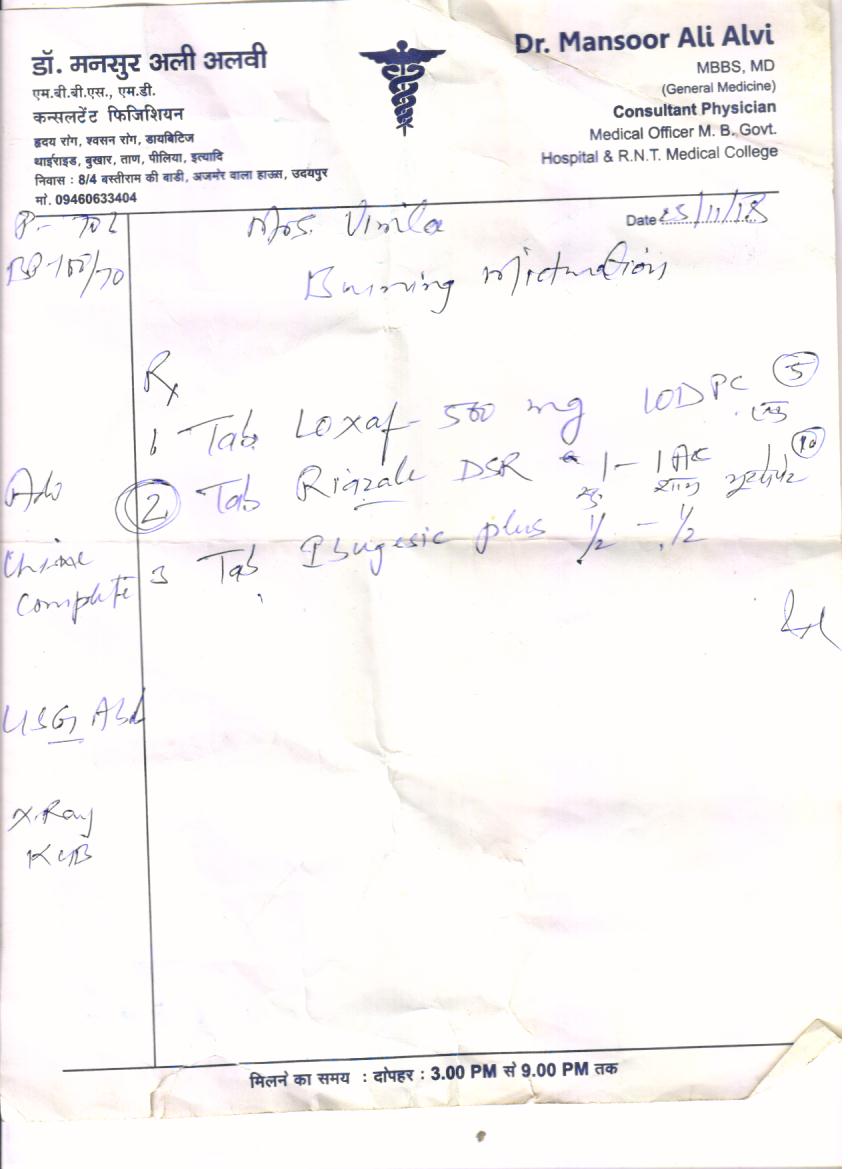 डॉ. मनसुर अली अलवी
एम.बी.बी.एस., एम.डी.
कन्सलटेंट फिजिशियन
हृदय रोग, श्वसन रोग, डायबिटिज
थाईराइड, बुखार, ताण, पीलिया, इत्यादि
निवास : 8/4 बस्तीराम की बाडी, अजमेर वाला हाऊस, उदयपुर
मो. 09460633404
Dr. Mansoor Ali Alvi
MBBS, MD
(General Medicine)
Consultant Physician
Medical Officer M. B. Govt.
Hospital & R.N.T. Medical College
Mrs. Vimla
Date 25/11/18
BP
Burning Micturation
Rx
1 Tab Loxaf 500 mg 1ODPC 5
2 Tab DSR 1 - 1 AC शाम 10
3 Tab Ibugesic plus 1/2 - 1/2
Adv
Urine
Complete
USG Abd
X.Ray
KUB
मिलने का समय : दोपहर : 3.00 PM से 9.00 PM तक